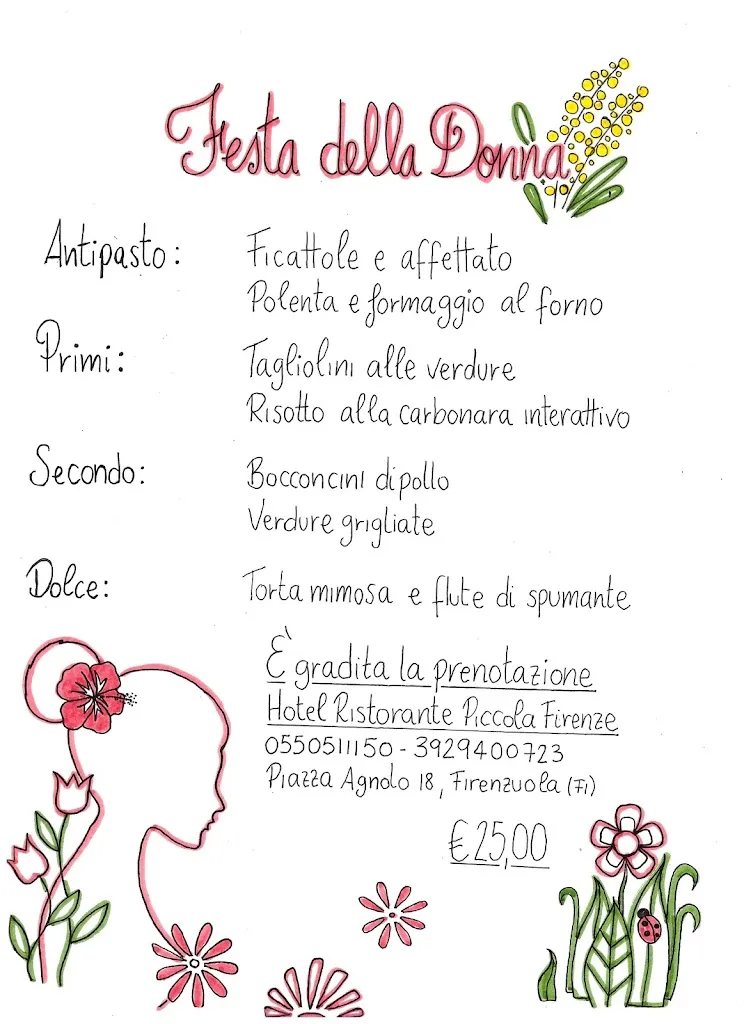 Festa della Donna
Antipasto: Ficattole e affettato
Polenta e formaggio al forno
Primi: Tagliolini alle verdure
Risotto alla carbonara interattivo
Secondo: Bocconcini di pollo
Verdure grigliate
Dolce: Torta mimosa e flute di spumante
È gradita la prenotazione
Hotel Ristorante Piccola Firenze
0550511150 - 3929400723
Piazza Agnolo 18, Firenzuola (Fi)
€ 25,00